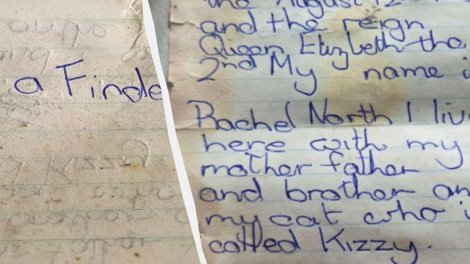 a Finde
and August 12
and the reign
Queen Elizbeth the
2nd My name i
Rachel North I liv
here with my
mother father
and brother an
my cat who i
called Kizzy.